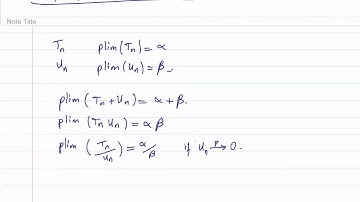 Note Title
Tₙ plim(Tₙ) = α
Uₙ plim(Uₙ) = β.
plim (Tₙ + Uₙ) = α + β.
plim (Tₙ Uₙ) = α β
plim (Tₙ/Uₙ) = α/β if Uₙ →ᵖ 0.